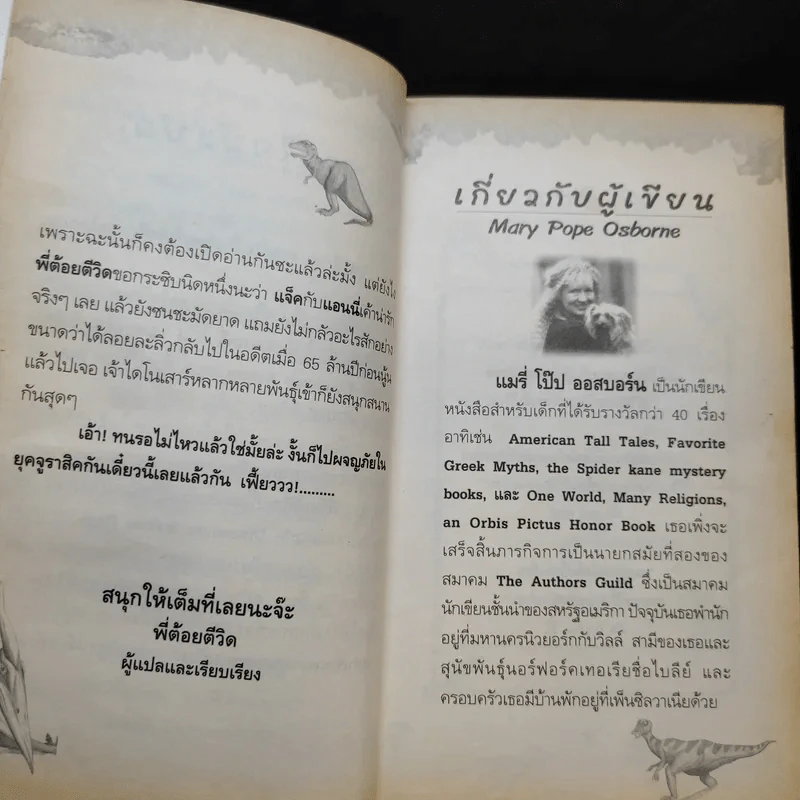 เพราะฉะนั้นก็คงต้องเปิดอ่านกันซะแล้วล่ะมั้ง แต่ยังไง
พี่ต้อยตีวิดขอกระซิบนิดหนึ่งนะว่า แจ็คกับแอนนี่เค้าน่ารัก
จริงๆ เลย แล้วยังซนชะมัดยาด แถมยังไม่กลัวอะไรสักอย่าง
ขนาดว่าได้ลอยละลิ่วกลับไปในอดีตเมื่อ 65 ล้านปีก่อนนู้น
แล้วไปเจอ เจ้าไดโนเสาร์หลากหลายพันธุ์เข้าก็ยังสนุกสนาน
กันสุดๆ
เอ้า! ทนรอไม่ไหวแล้วใช่มั้ยล่ะ งั้นก็ไปผจญภัยใน
ยุคจูราสิคกันเดี๋ยวนี้เลยแล้วกัน เฟี้ยววว!.........
สนุกให้เต็มที่เลยนะจ๊ะ
พี่ต้อยตีวิด
ผู้แปลและเรียบเรียง
เกี่ยวกับผู้เขียน
Mary Pope Osborne
แมรี่ โป๊ป ออสบอร์น เป็นนักเขียน
หนังสือสำหรับเด็กที่ได้รับรางวัลกว่า 40 เรื่อง
อาทิเช่น American Tall Tales, Favorite
Greek Myths, the Spider kane mystery
books, และ One World, Many Religions,
an Orbis Pictus Honor Book เธอเพิ่งจะ
เสร็จสิ้นภารกิจการเป็นนายกสมัยที่สองของ
สมาคม The Authors Guild ซึ่งเป็นสมาคม
นักเขียนชั้นนำของสหรัฐอเมริกา ปัจจุบันเธอพำนัก
อยู่ที่มหานครนิวยอร์กกับวิลล์ สามีของเธอและ
สุนัขพันธุ์นอร์ฟอร์คเทอเรียชื่อไบลีย์ และ
ครอบครัวเธอมีบ้านพักอยู่ที่เพ็นซิลวาเนียด้วย